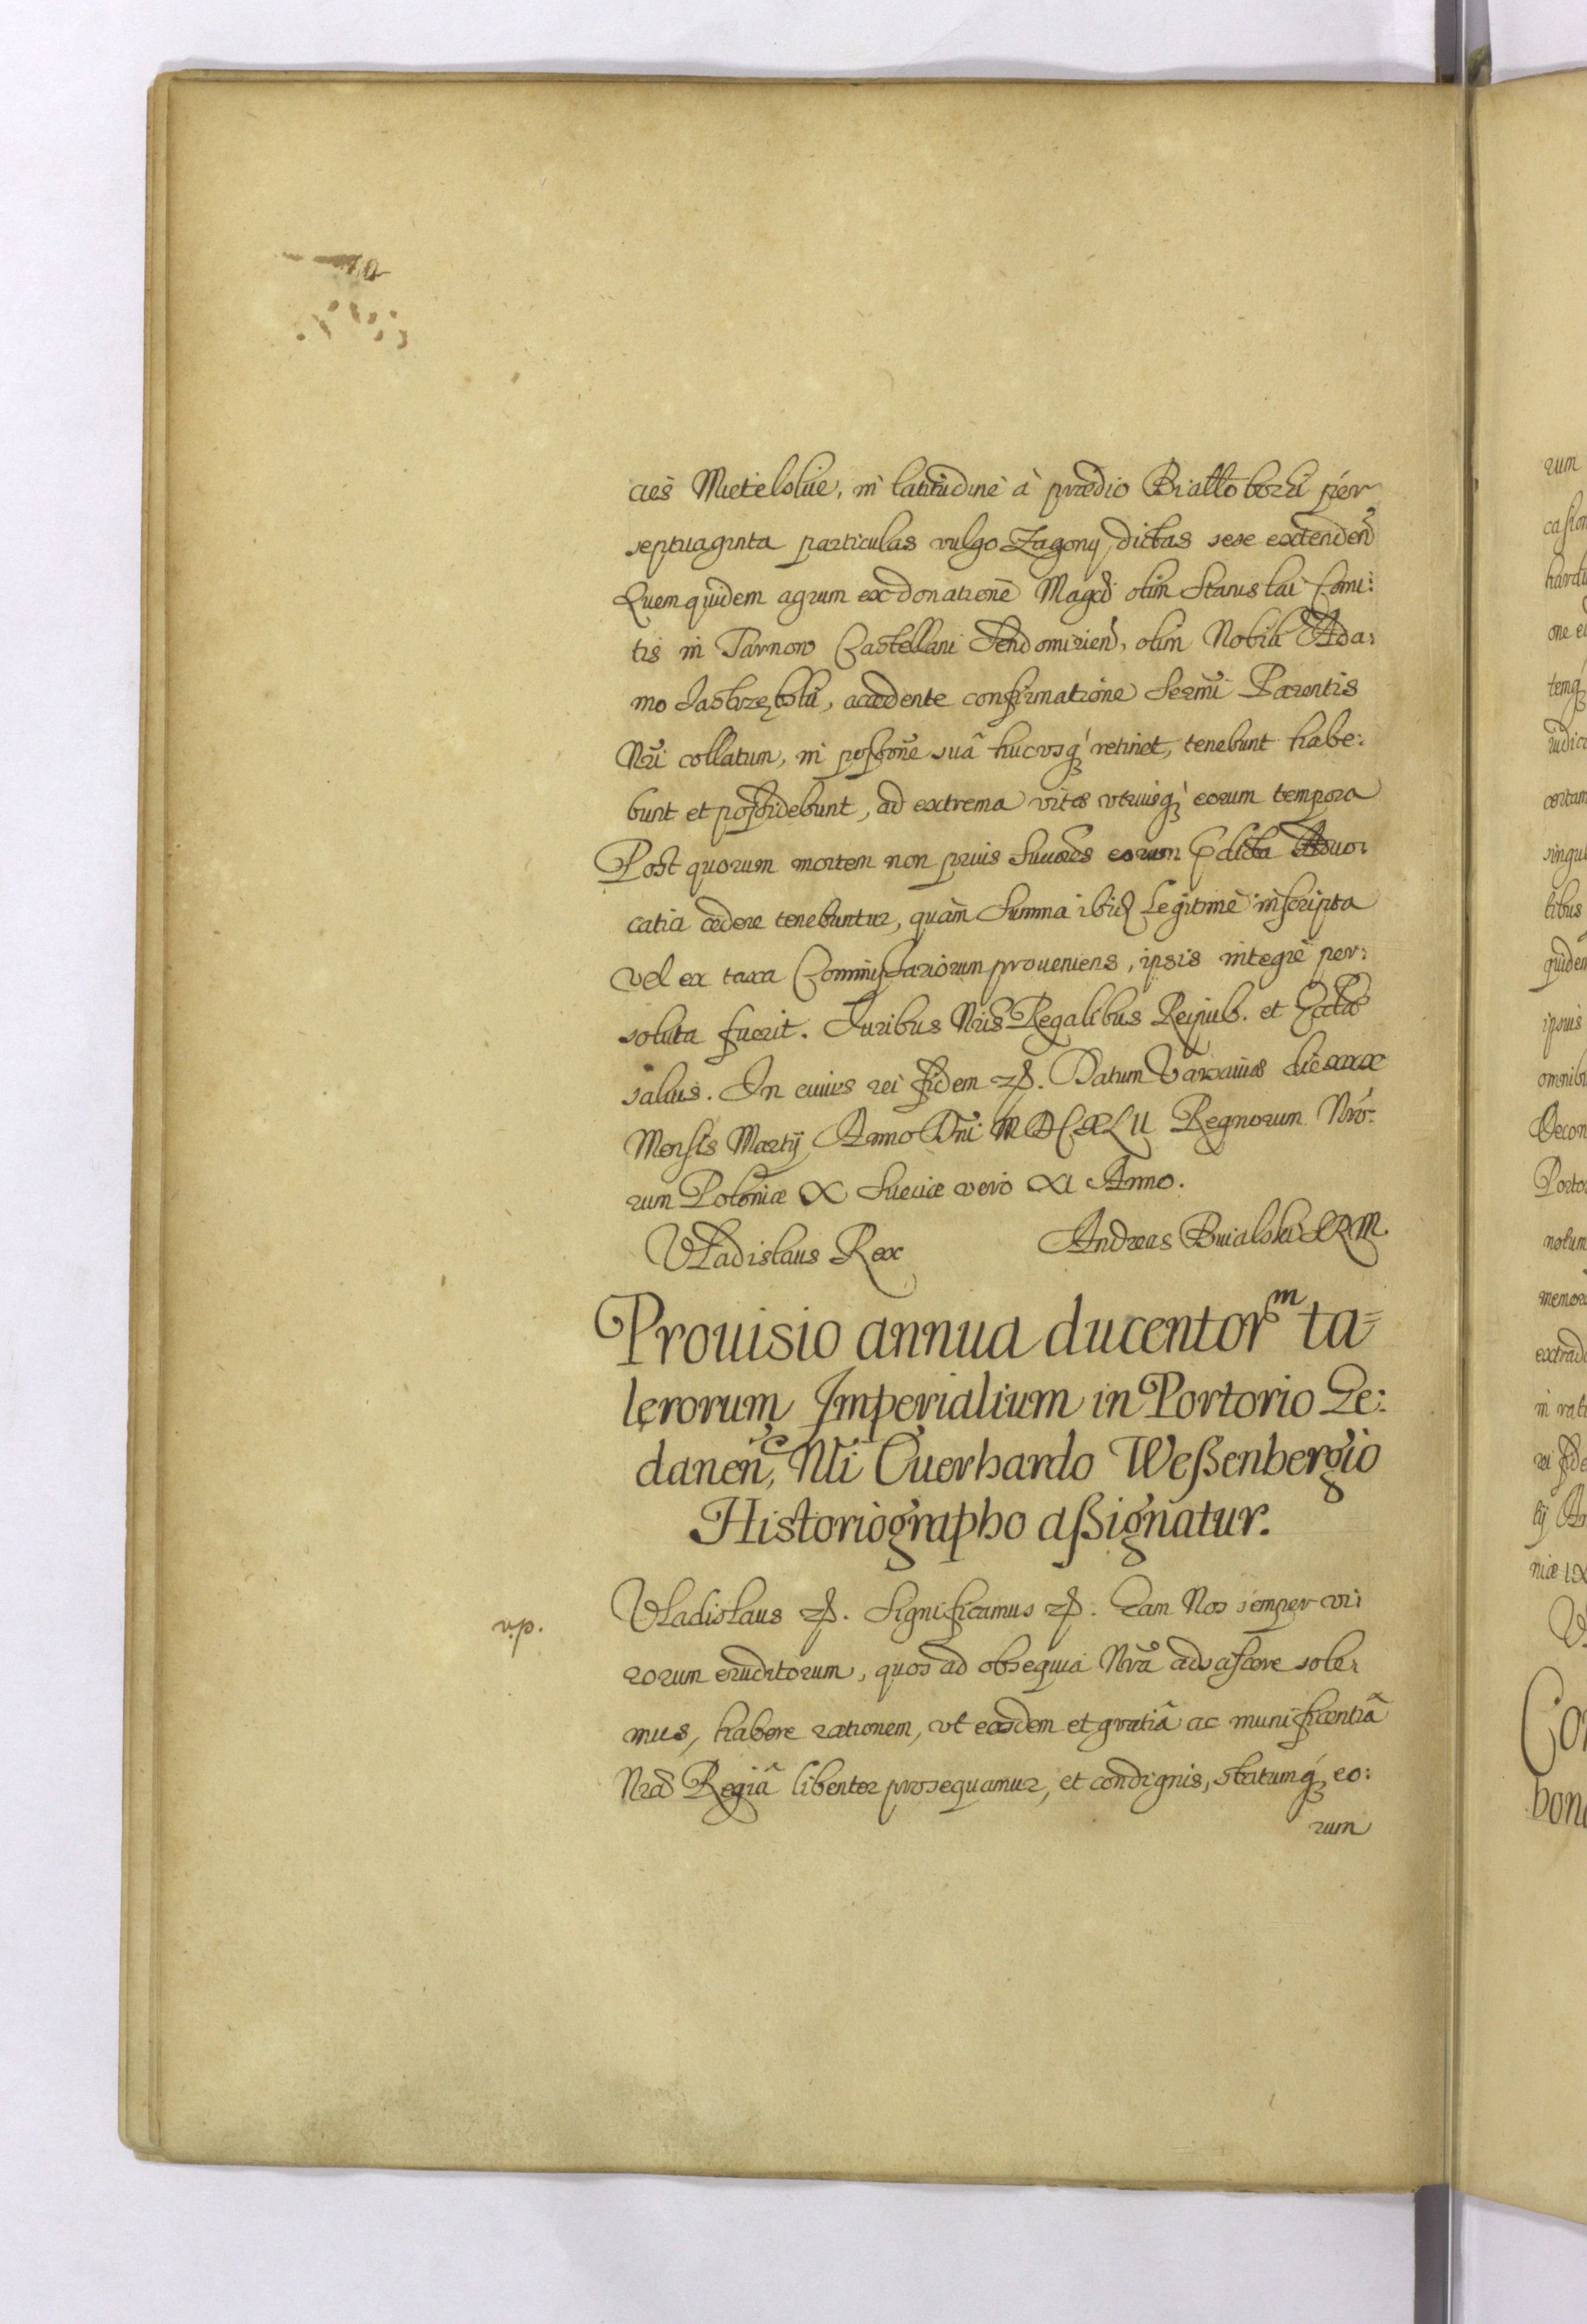 cies Mietelskie, in latitudine à prædio Biallobozki per
septuaginta particulas vulgo Zagony dictas sese extenden
Quem quidem agrum ex donatione Magcd olim Stanislai Comi:
tis in Tarnow Castellani Sendomirien, olim Nobili Ada:
mo Jastrzębski, accedente confirmatione Sermi Parentis
Nri collatum, in possone suâ hucusq retinet, tenebunt habe:
bunt et possidebunt, ad extrema vitæ utriusq eorum tempora
Post quorum mortem non prius Succores eorum pdicta Aduo:
catia cedere tenebuntur, quàm Summa ibid Legitimè inscripta
vel ex taxa Commissariorum proueniens, ipsis integrè per:
soluta fuerit. Juribus Nris Regalibus Reipub. et Ecclæ
saluis. In cuius rei fidem etc. Datum Varsauiæ die xxx
Mensis Martij Anno Dni MDCXLII Regnorum Nro:
rum Poloniæ X Sueciæ vero XI Anno.
Vladislaus Rex Andreas Buialski SRM.
Prouisio annua ducentorm ta=
lerorum Imperialium in Portorio Ge:
danen, Nli Euerhardo Weßenbergio
Historiographo aßignatur.
v.p. Vladislaus etc. Significamus etc. Eam Nos semper vi:
rorum eruditorum, quos ad obsequia Nra adsciscere sole:
mus, habere rationem, ut eosdem et gratiâ ac munificentiâ
Nra Regiâ libenter prosequamur, et condignis, statumq eo:
rum